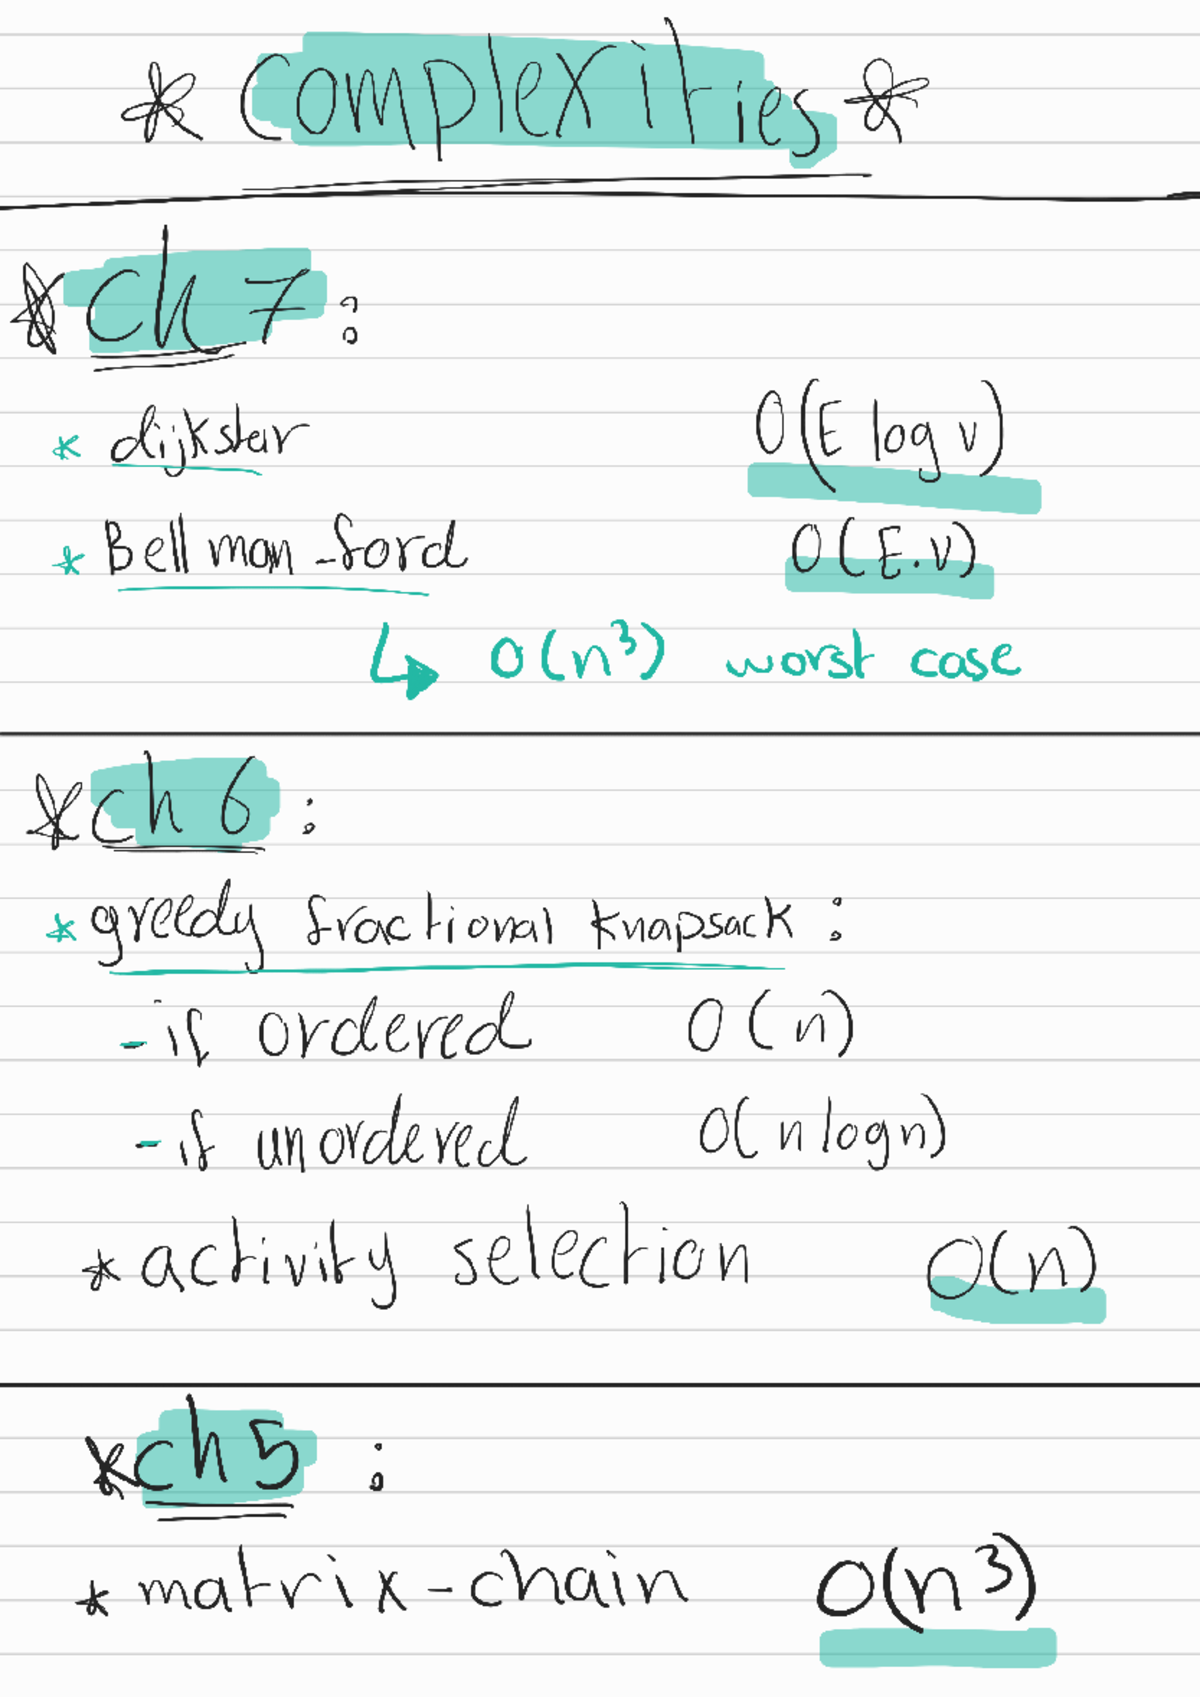 * Complexities *
* ch 7 :
* dijkstar O(E log v)
* Bell man - ford O(E.v)
↳ O(n³) worst case
* ch 6 :
* greedy fractional knapsack :
- if ordered O(n)
- if unordered O(n logn)
* activity selection O(n)
* ch 5 :
* matrix - chain O(n³)